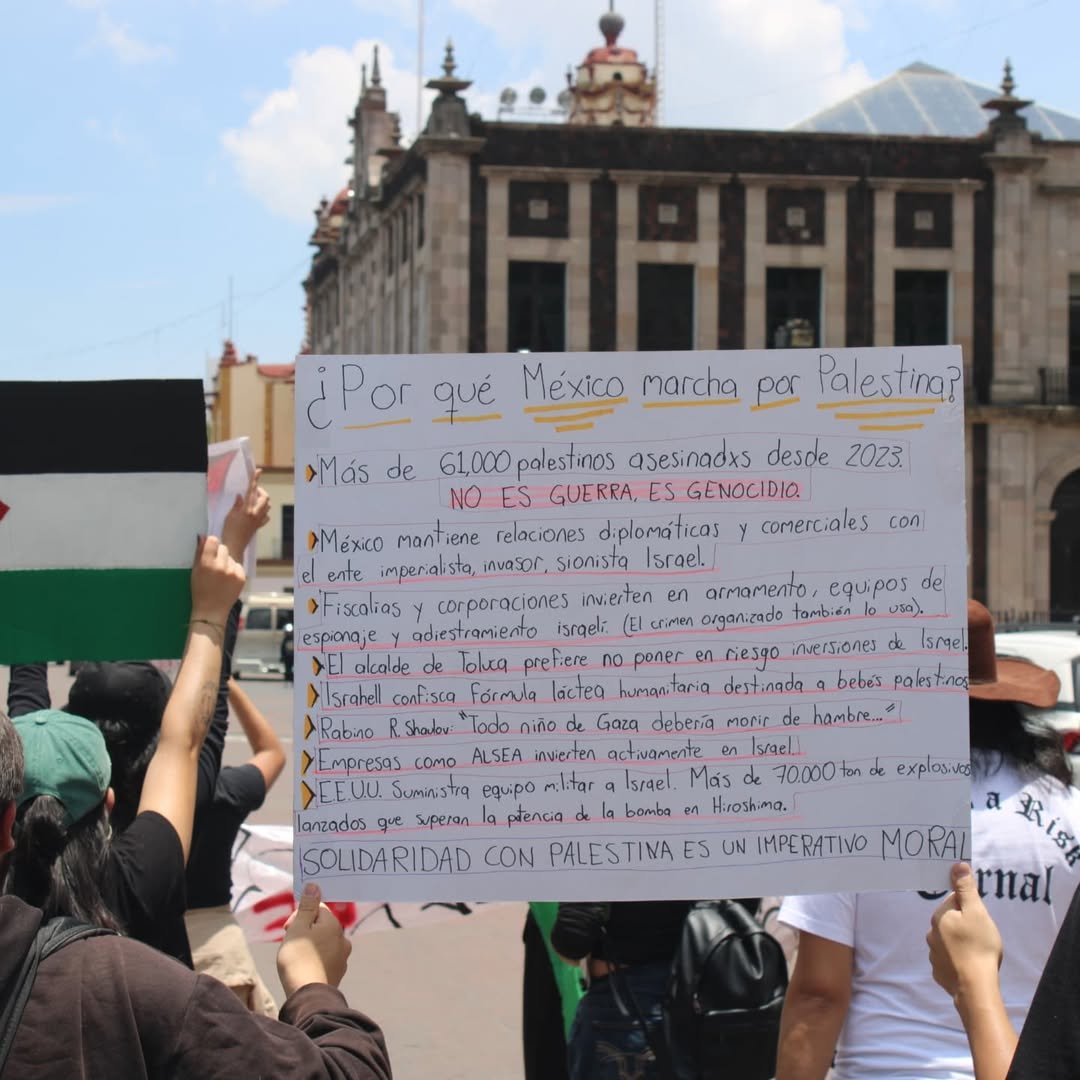 ¿Por qué México marcha por Palestina?
Más de 61,000 palestinos asesinadxs desde 2023.
NO ES GUERRA, ES GENOCIDIO.
México mantiene relaciones diplomáticas y comerciales con
el ente imperialista, invasor, sionista Israel.
Fiscalias y corporaciones invierten en armamento, equipos de
espionaje y adiestramiento israelí. (El crimen organizado también lo usa).
El alcalde de Toluca prefiere no poner en riesgo inversiones de Israel.
Israhell confisca fórmula láctea humanitaria destinada a bebés palestinos
Rabino R. Shaulov: "Todo niño de Gaza debería morir de hambre..."
Empresas como ALSEA invierten activamente en Israel.
E.E.U.U. Suministra equipo militar a Israel. Más de 70.000 ton de explosivos
lanzados que superan la potencia de la bomba en Hiroshima.
SOLIDARIDAD CON PALESTINA ES UN IMPERATIVO MORAL
a Risk
ernal